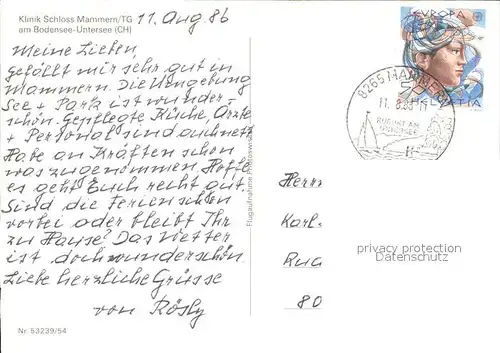 Klinik Schloss Mammern/TG
am Bodensee-Untersee (CH)
11. Aug. 86
Meine Lieben,
gefällt mir sehr gut in
Mammern. Die Umgebung
See + Park ist wunder-
schön. Gepflegte Küche, Ärzte
+ Personal sind auch nett
Habe an Kräften schon
was zugenommen. Hoffe
es geht Euch recht gut.
Sind die Ferien schon
vorbei oder bleibt Ihr
zu Hause? Das Wetter
ist doch wunderschön.
Liebe herzliche Grüsse
von Rösly
Nr. 53239/54
EUROPA
HELVETIA
8265 MAMMERN
11. 8. 86
KURORT AM
UNTERSEE
Herrn
Karl.
Rua
80
privacy protection
Datenschutz